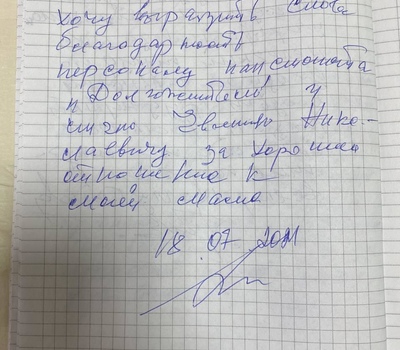 Хочу выразить слова
благодарность
персоналу пансионата
"Долгожитель" и
лично Николаевичу
за хорошее
отношение к
моей маме
18.07.2021